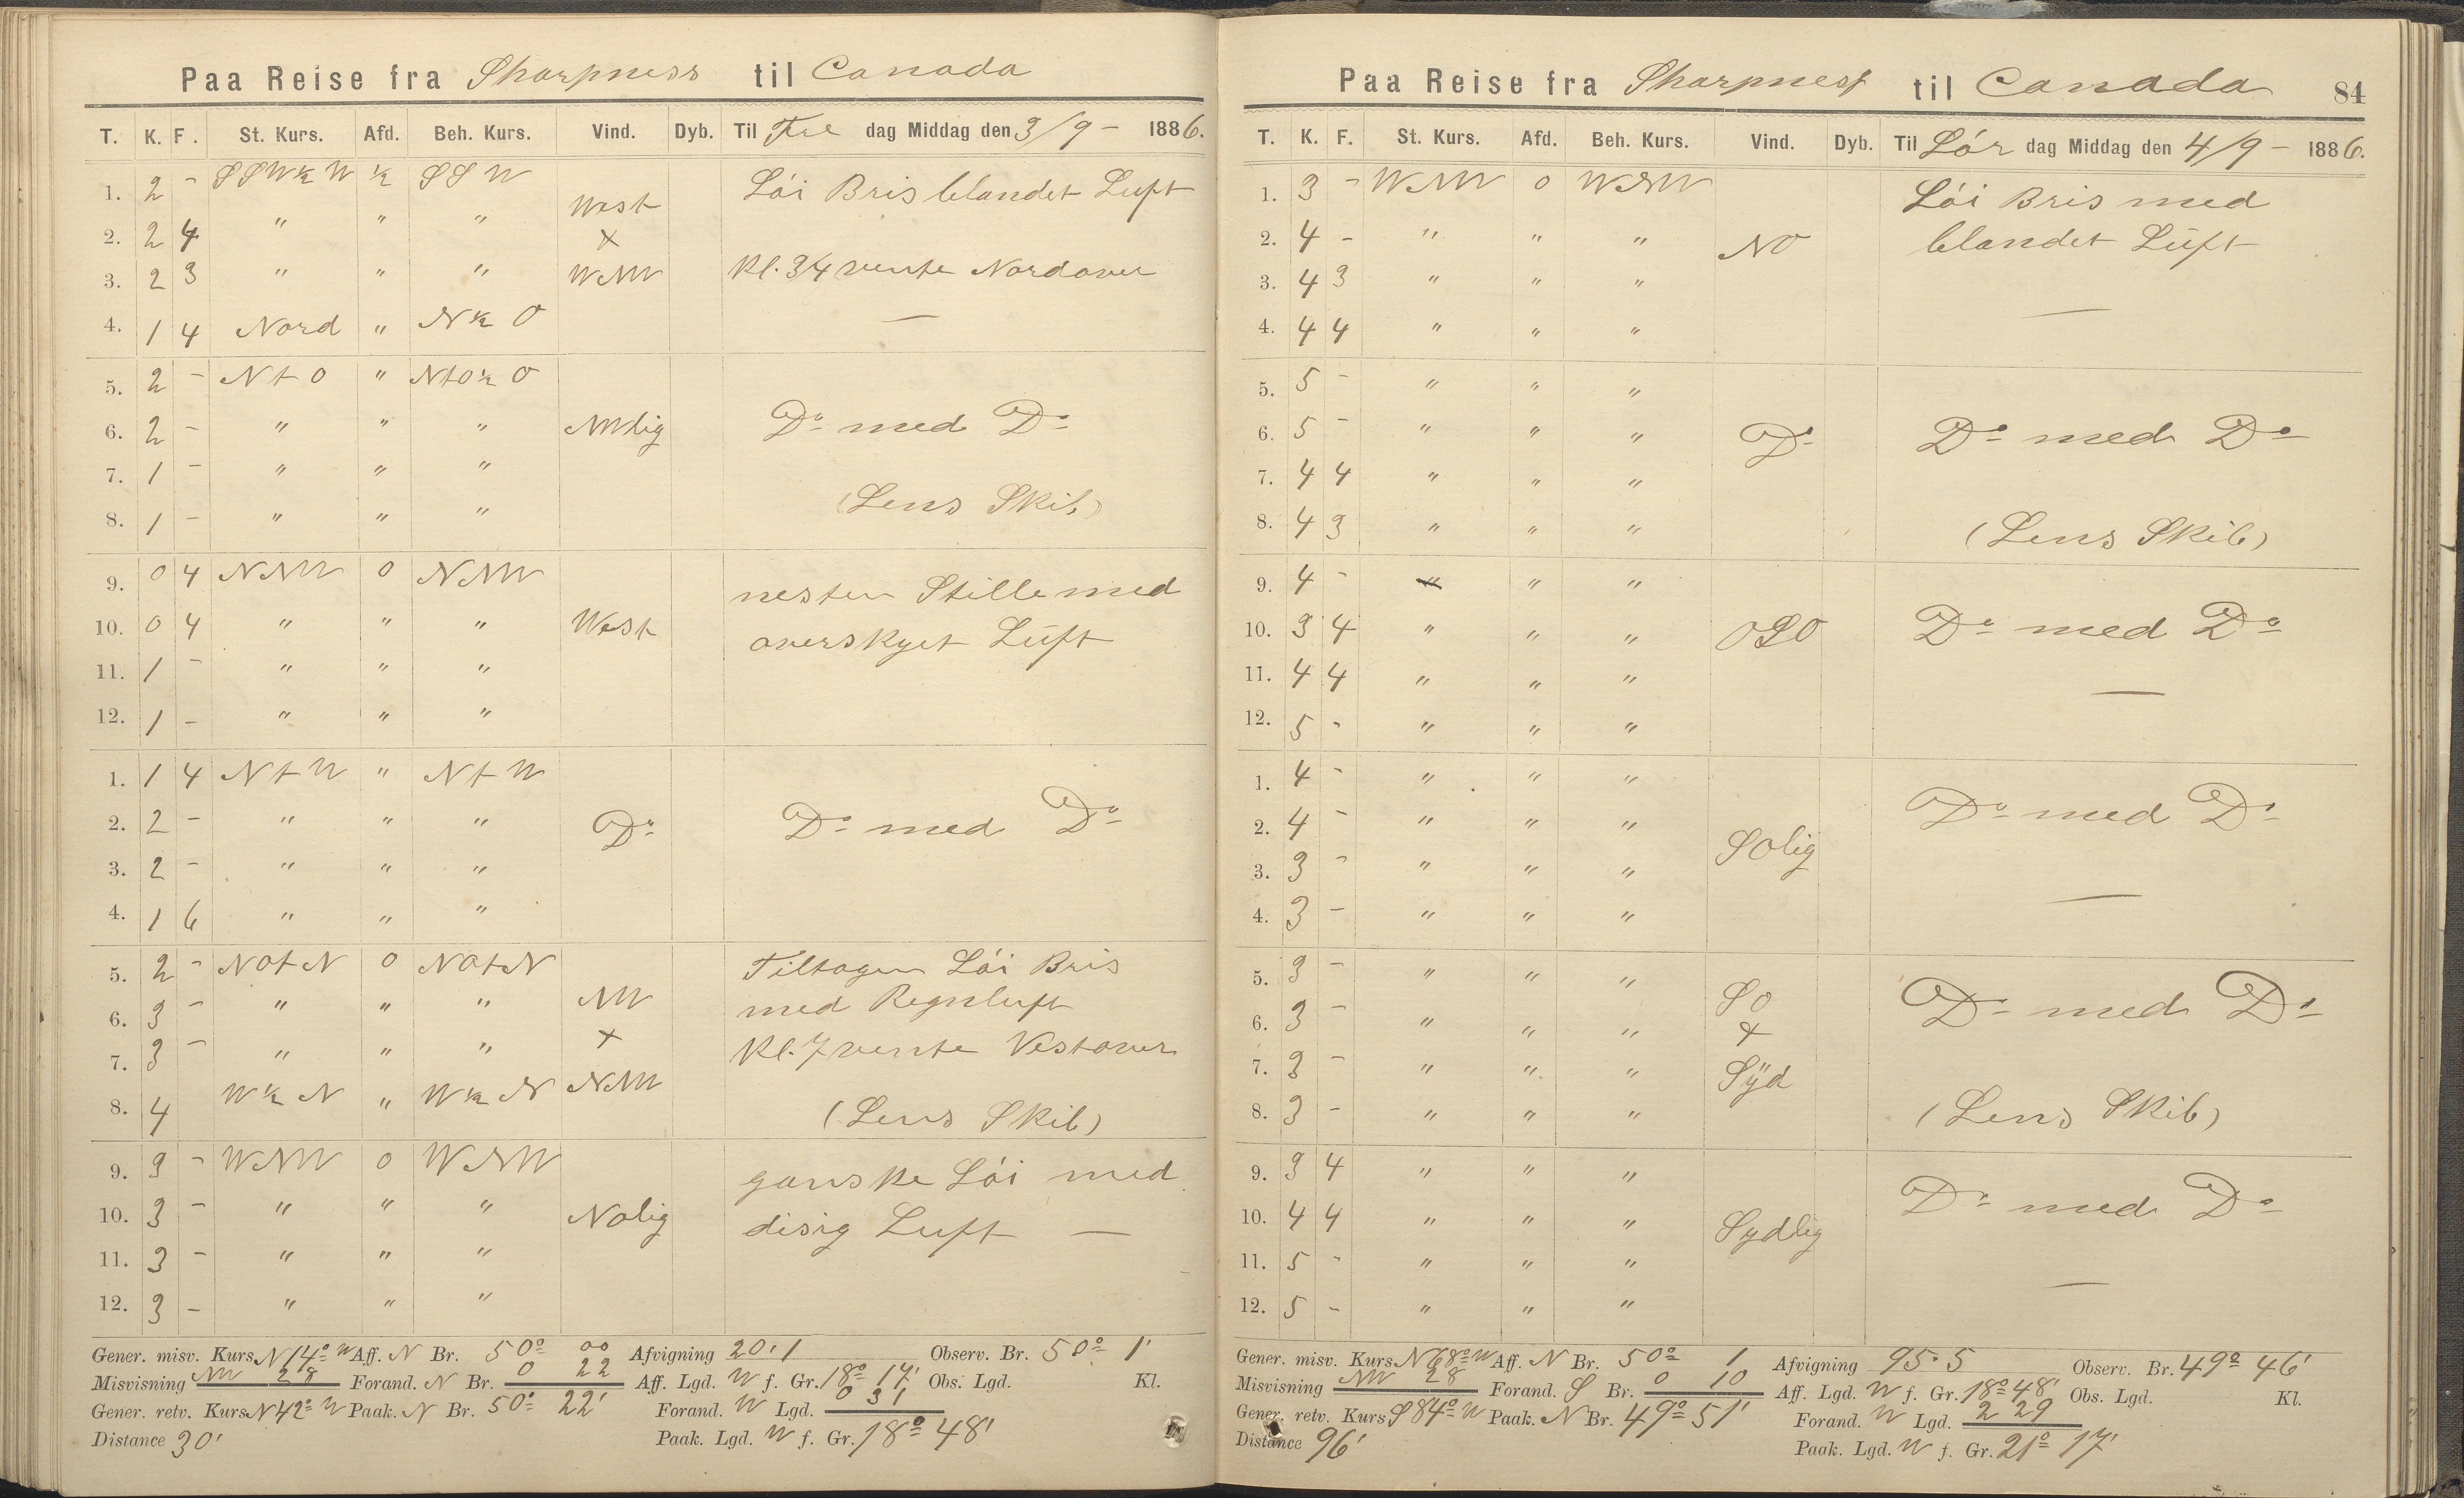 Paa Reise fra Sharpness til Canada
T. K. F. St. Kurs. Afd. Beh. Kurs. Vind. Dyb. Til Fre dag Middag den 3/9 - 1886.
1. 2 - SSW½W ½ SSW West Löi Bris blandet Luft
2. 2 4 " " " +
3. 2 3 " " " WNW Kl. 34 vente Nordover
4. 1 4 Nord " N½O —
5. 2 - NtO " NtO½O
6. 2 - " " " NWlig Do med Do
7. 1 - " " "
8. 1 - " " " (Lens Skib)
9. 0 4 NNW 0 NNW nesten Stille med
10. 0 4 " " " West overskyet Luft
11. 1 - " " "
12. 1 - " " "
1. 1 4 NtW " NtW
2. 2 - " " " Do Do med Do
3. 2 - " " "
4. 1 6 " " "
5. 2 - NOtN 0 NOtN Tiltagen Löi Bris
6. 3 - " " " NW med Regnluft
7. 3 - " " " + Kl. 7 vente Vestover
8. 4 W½N " W½N NNW (Lens Skib)
9. 3 - WNW 0 WNW ganske Löi med
10. 3 - " " " NOlig disig Luft —
11. 3 - " " "
12. 3 - " " "
Gener. misv. Kurs N14°W Aff. N Br. 50° 00 Afvigning 20'1 Observ. Br. 50° 1'
Misvisning NW 28 Forand. N Br. 0 22 Aff. Lgd. W f. Gr. 18° 17' Obs. Lgd. Kl.
Gener. retv. Kurs N42°W Paak. N Br. 50° 22' Forand. W Lgd. 0 31
Distance 30' Paak. Lgd. W f. Gr. 18° 48'
Paa Reise fra Sharpness til Canada 84
T. K. F. St. Kurs. Afd. Beh. Kurs. Vind. Dyb. Til Lör dag Middag den 4/9 - 1886.
1. 3 - WNW 0 WNW Löi Bris med
2. 4 - " " " NO blandet Luft
3. 4 3 " " "
4. 4 4 " " " —
5. 5 - " " "
6. 5 - " " " Do Do med Do
7. 4 4 " " "
8. 4 3 " " " (Lens Skib)
9. 4 - " " "
10. 3 4 " " " OSO Do med Do
11. 4 4 " " " —
12. 5 - " " "
1. 4 - " " " Do med Do
2. 4 - " " " SOlig
3. 3 - " " "
4. 3 - " " " —
5. 3 - " " " SO Do med Do
6. 3 - " " " +
7. 3 - " " " Syd
8. 3 - " " " (Lens Skib)
9. 3 4 " " " Do med Do
10. 4 4 " " " Sydlig
11. 5 - " " "
12. 5 - " " " —
Gener. misv. Kurs N68°W Aff. N Br. 50° 1 Afvigning 95.5 Observ. Br. 49° 46'
Misvisning NW 28 Forand. S Br. 0 10 Aff. Lgd. W f. Gr. 18° 48' Obs. Lgd. Kl.
Gener. retv. Kurs S84°W Paak. N Br. 49° 51' Forand. W Lgd. 2 29
Distance 96' Paak. Lgd. W f. Gr. 21° 17'